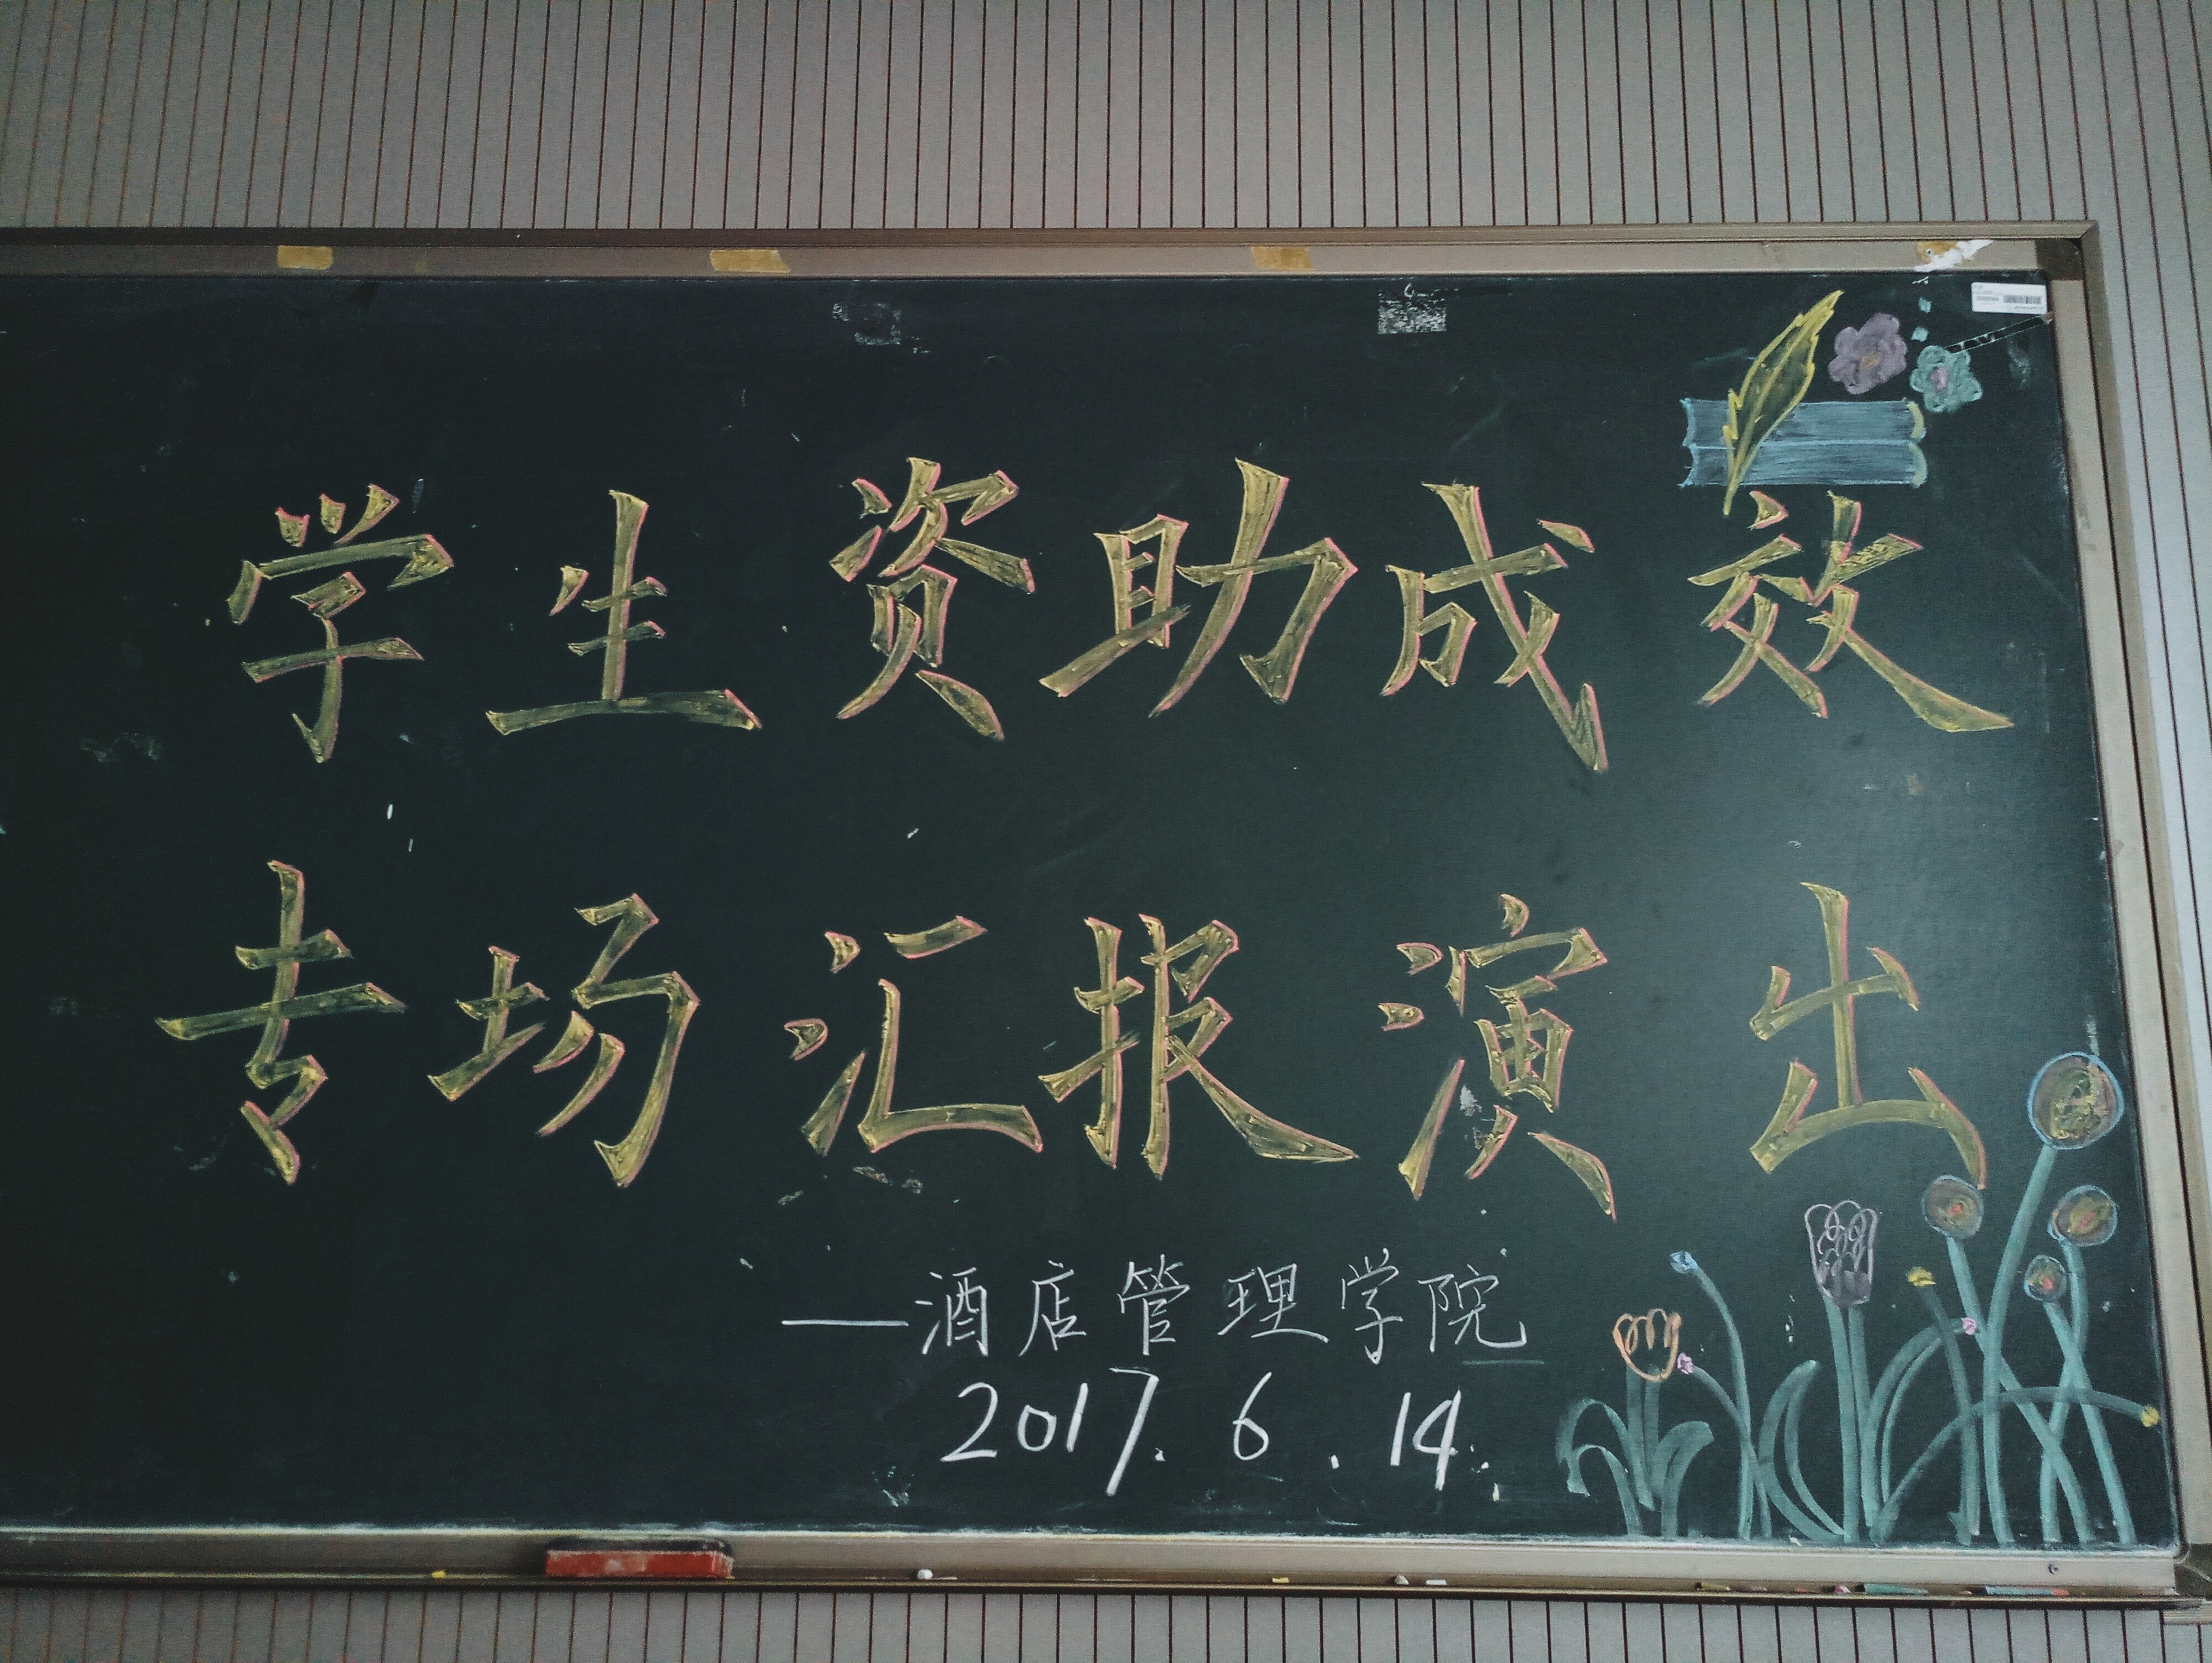 学生资助成效
专场汇报演出
——酒店管理学院
2017.6.14